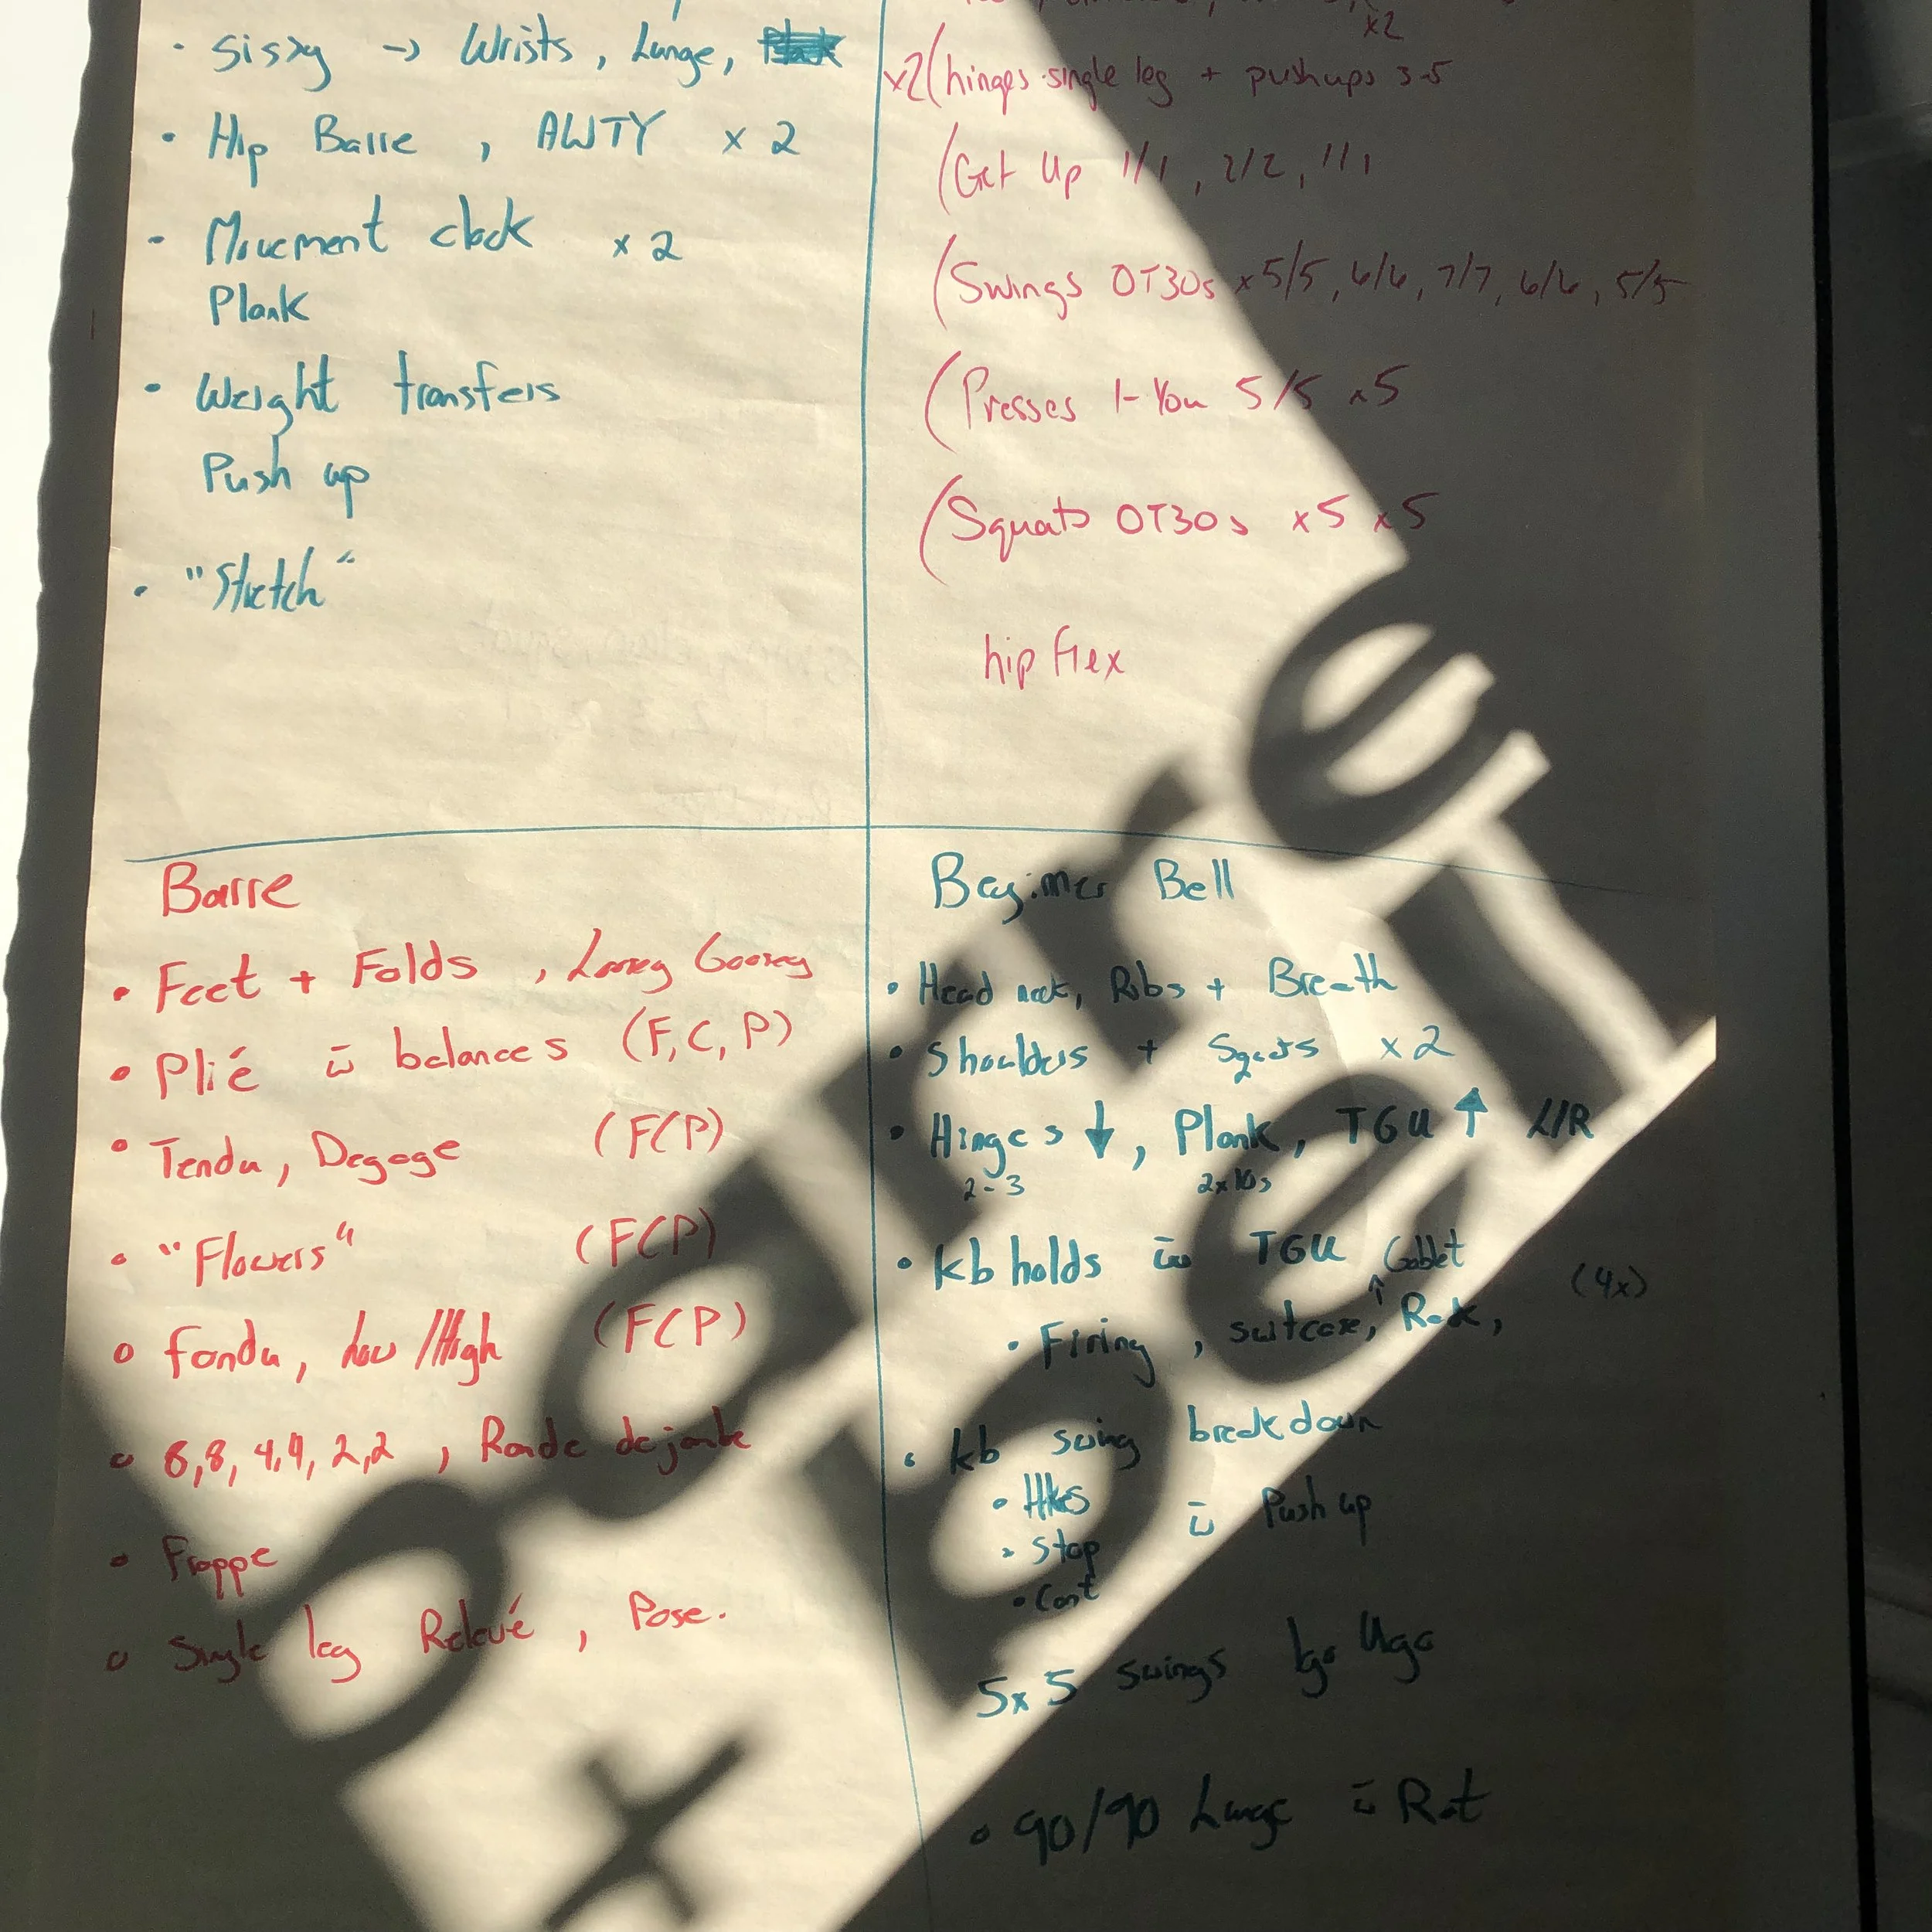 • Sissy → Wrists, Lunge,
• Hip Barre, AWTY x 2
• Movement clock x 2
Plank
• Weight transfers
Push up
• "Stretch"
x2
x2(hinges single leg + pushups 3-5
(Get Up 1/1, 2/2, 1/1
(Swings OT30s x5/5, 6/6, 7/7, 6/6, 5/5
(Presses 1-You 5/5 x5
(Squats OT30s x5 x5
hip flex
Barre
• Feet + Folds, Loosey Goosey
• Plié c̄ balances (F, C, P)
• Tendu, Degage (FCP)
• "Flowers" (FCP)
• Fondu, Low/High (FCP)
• 8,8, 4,4, 2,2, Ronde de jambe
• Frappe
• Single leg Relevé, Pose.
Beginner Bell
• Head neck, Ribs + Breath
• Shoulders + Squats x2
• Hinges ↓, Plank, TGU ↑ L/R
2-3 2x10s
• kb holds c̄ TGU Goblet (4x)
• Firing, suitcase, ↑ Rack,
• kb swing breakdown
• Hikes
• Stop c̄ Push up
• Cont
5x5 swings
• 90/90 Lunge c̄ Rot
barre
+ bell